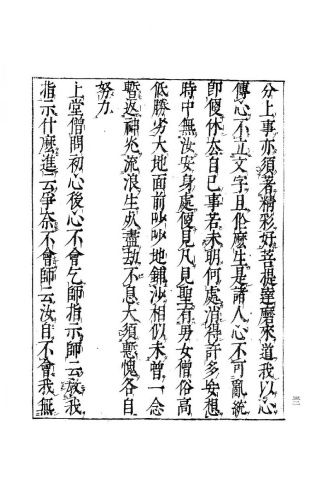 分上事亦須著精彩好菩提達磨來道我以心
傳心不立文字且作麽生是諸人心不可亂統
卽便休去自己事若未明何處消得許多妄想
時中無汝安身處便見凡見聖有男女僧俗高
低勝劣大地面前吵吵地鋪沙相似未曾一念
暫返神光流浪生死盡劫不息大須慚愧各自
努力
上堂僧問初心後心不會乞師指示師云敎我
指示什麽進云爭奈不會師云汝自不會我無